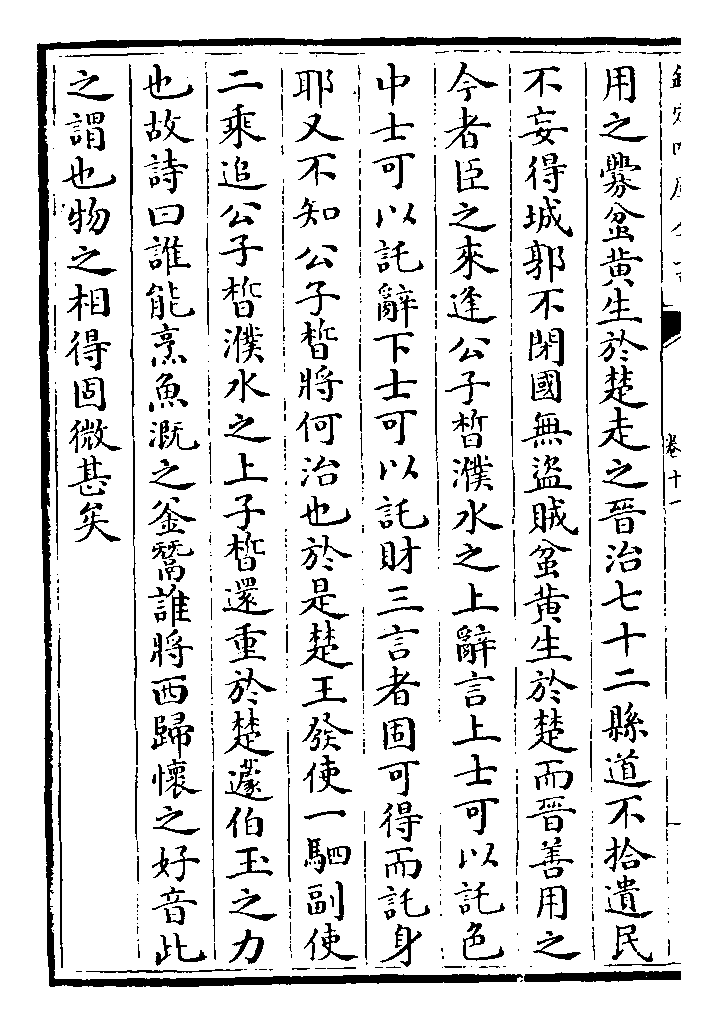 欽定四庫全書 卷十一
用之釁盆黄生於楚走之晉治七十二縣道不拾遺民
不妄得城郭不閉國無盜賊盆黄生於楚而晉善用之
今者臣之來逢公子晳濮水之上辭言上士可以託色
中士可以託辭下士可以託財三言者固可得而託身
耶又不知公子晳將何治也於是楚王發使一駟副使
二乘追公子晳濮水之上子晳還重於楚蘧伯玉之力
也故詩曰誰能烹魚溉之釡鬵誰將西歸懷之好音此
之謂也物之相得固微甚矣